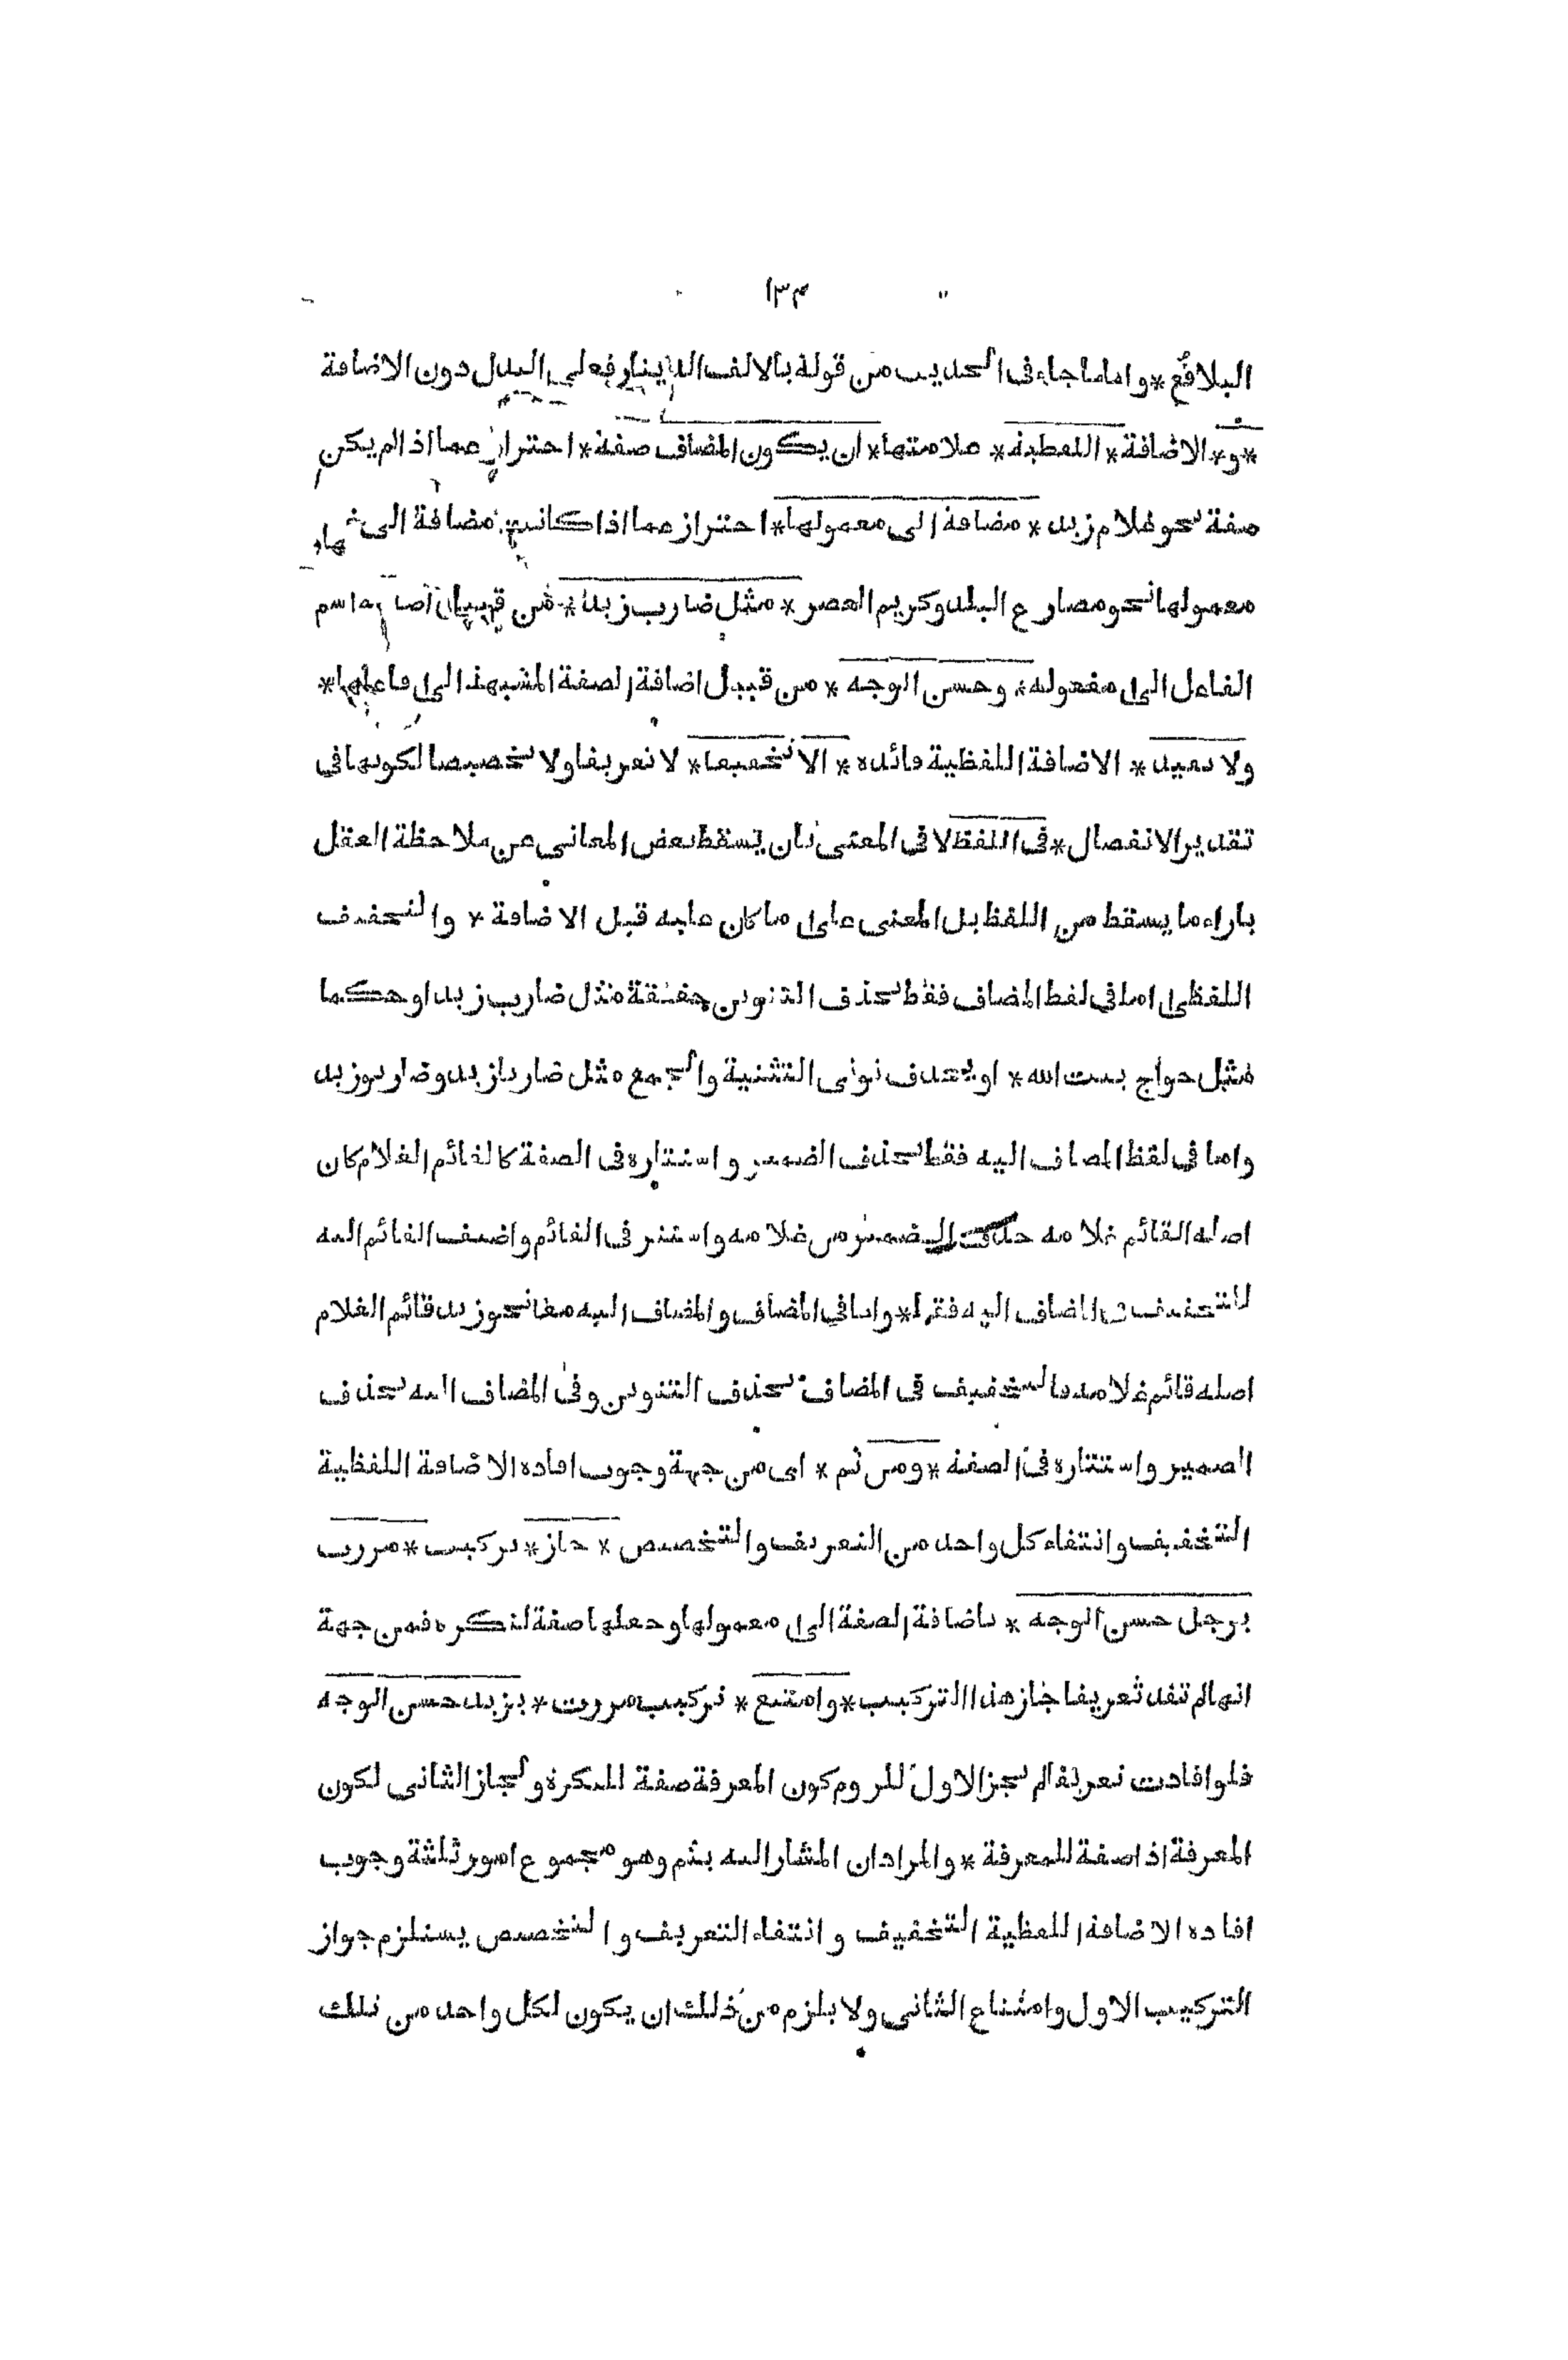 ١٣٤
البلاقع * واما ما جاء فى الحديث من قوله بالالف الدينار فعلى البدل دون الاضافة
* و * الاضافة * اللفظية * علامتها * ان يكون المضاف صفة * احتراز عما اذا لم يكن
صفة نحو غلام زيد * مضافة الى معمولها * احتراز عما اذا كانت مضافة الى غير
معمولها نحو مصارع البلد وكريم العصر * مثل ضارب زيد * من قبيل اضافة اسم
الفاعل الى مفعوله * وحسن الوجه * من قبيل اضافة الصفة المشبهة الى فاعلها *
ولا تفيد * الاضافة اللفظية فائدة * الا تخفيفا * لا تعريفا ولا تخصيصا لكونها فى
تقدير الانفصال * فى اللفظ لا فى المعنى بان يسقط بعض المعانى عن ملاحظة العقل
بازاء ما يسقط من اللفظ بل المعنى على ما كان عليه قبل الاضافة * والتخفيف
اللفظى اما فى لفظ المضاف فقط بحذف التنوين حقيقة مثل ضارب زيد او حكما
مثل حواج بيت الله * او بحذف نونى التثنية والجمع مثل ضاربا زيد وضاربو زيد
واما فى لفظ المضاف اليه فقط بحذف الضمير واستتاره فى الصفة كالقائم الغلام كان
اصله القائم غلامه حذف الضمير من غلامه واستتر فى القائم واضيف القائم اليه
للتخفيف فى المضاف اليه فقط * واما فى المضاف والمضاف اليه معا نحو زيد قائم الغلام
اصله قائم غلامه فالتخفيف فى المضاف بحذف التنوين وفى المضاف اليه بحذف
الضمير واستتاره فى الصفة * ومن ثم * اى من جهة وجوب افادة الاضافة اللفظية
التخفيف وانتفاء كل واحد من التعريف والتخصيص * جاز * تركيب * مررت
برجل حسن الوجه * باضافة الصفة الى معمولها وجعلها صفة لنكرة فمن جهة
انها لم تفد تعريفا جاز هذا التركيب * وامتنع * تركيب مررت * بزيد حسن الوجه
فلو افادت تعريفا لم يجز الاول للزوم كون المعرفة صفة للنكرة ولجاز الثانى لكون
المعرفة اذا صفة للمعرفة * والمراد ان المشار اليه بثم وهو مجموع امور ثلثة وجوب
افادة الاضافة اللفظية التخفيف وانتفاء التعريف والتخصيص يستلزم جواز
التركيب الاول وامتناع الثانى ولا يلزم من ذلك ان يكون لكل واحد من تلك